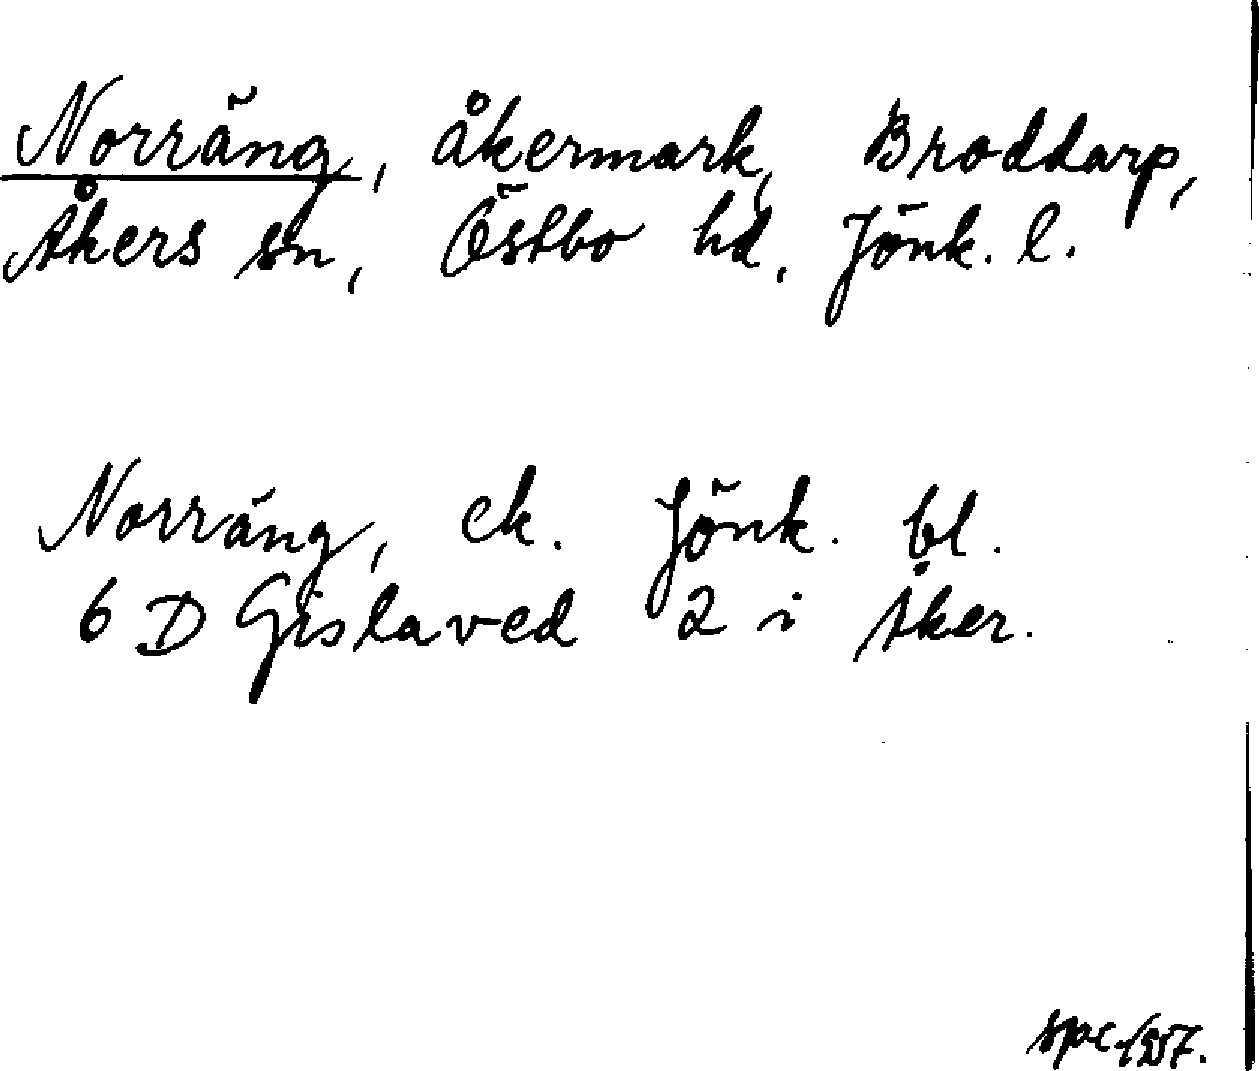 Norräng, åkermark, Broddarp,
Åkers sn, Östbo hd, Jönk. l.
Norräng, ek. Jönk. bl.
6 D Gislaved 2 i Åker.